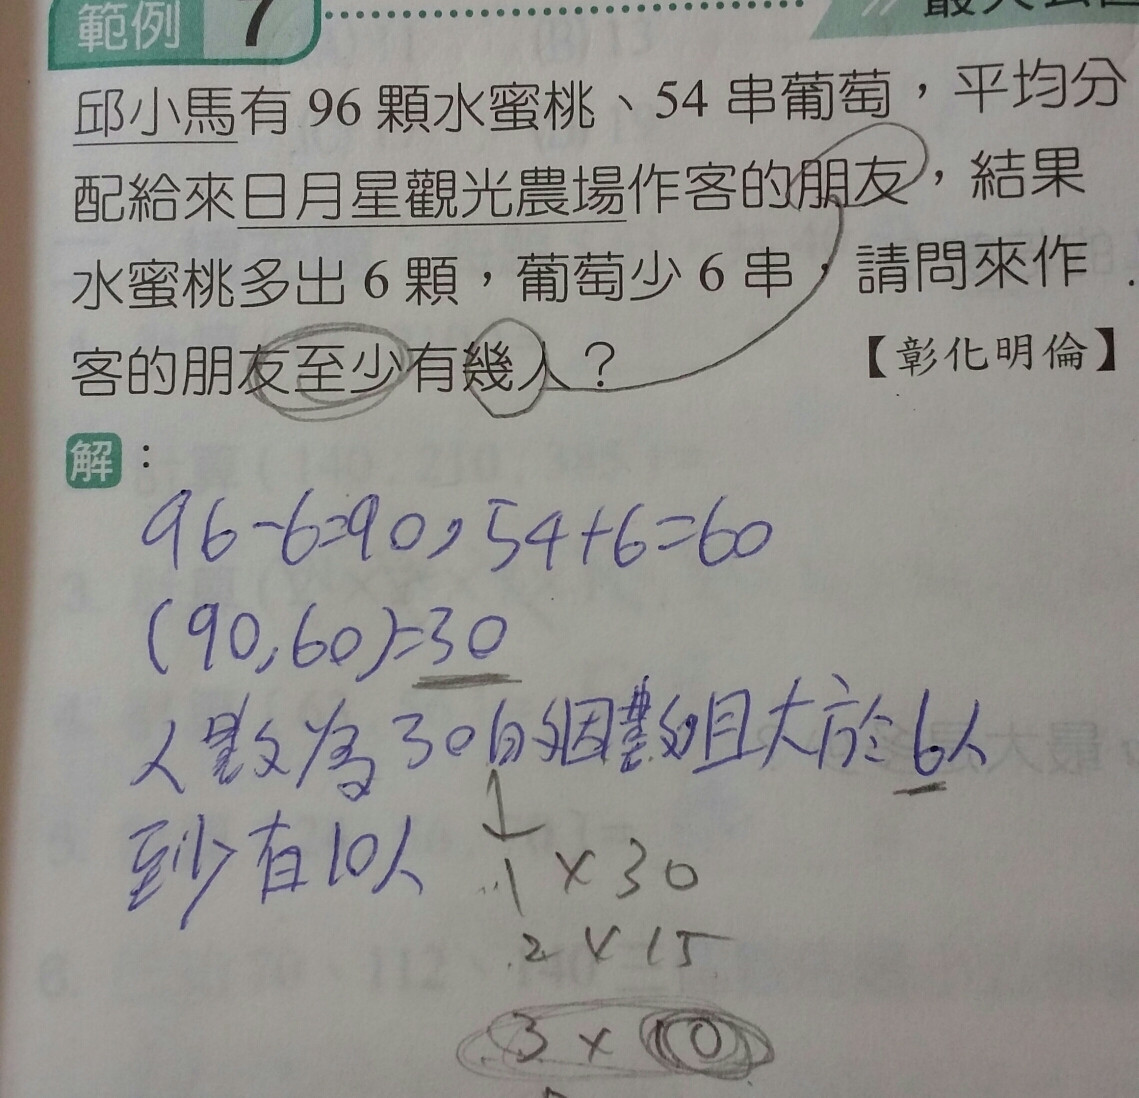 範例 7
邱小馬有 96 顆水蜜桃、54 串葡萄，平均分
配給來日月星觀光農場作客的朋友，結果
水蜜桃多出 6 顆，葡萄少 6 串，請問來作
客的朋友至少有幾人？【彰化明倫】
解：
96-6=90，54+6=60
(90,60)=30
人數為30的因數且大於6人
至少有10人
1×30
2×15
3×10